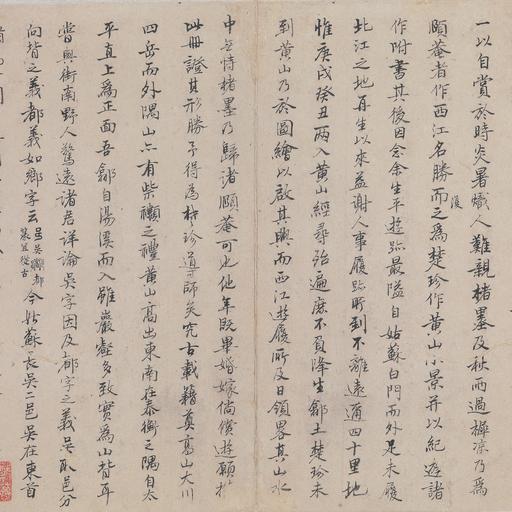 一以自賞於時炎暑熾人難親楮墨及秋雨過樨涼乃爲
頤菴者作西江名勝而復之爲楚珍作黃山小景并以紀遊諸
作附書其後因念余生平遊跡最隘自姑蘇白門而外足未履
北江之地再生以來益謝人事履跡所到不離遠邇四十里地
惟庚戌癸丑兩入黃山經尋殆遍庶不負降生鄉土楚珍未
到黃山乃於圖繪以啟其興而西江遊履所及日領畧其山水
中之恃楮墨乃歸諸頤菴可也他年既畢婚嫁倘償遊願
此冊證其形勝予得爲楚珍道師矣究古載籍奠高山大川
四岳而外隅山亦有柴禷之禮黃山高出東南在泰衡之隅自太
平直上爲正面吾鄉自湯溪而入雖巖壑多致實爲山背耳
嘗與衡南野人驚遠諸君詳論吳字因及都字之義吳邑分
向背之義都義如鄉字云呂吳鄉都篆並從古今姑蘇長吳二邑吳在東首